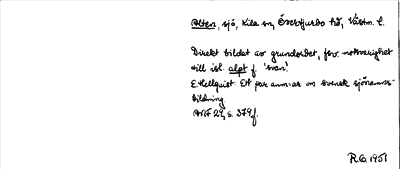 Alten, sjö, Kila sn, Övertjurbo hd, Västm. l.
Direkt bildat av grundordet, förv. motsvarighet
till isl. alpt f. 'svan'.
E. Hellquist. Ett par anm:ar om svensk sjönamns-
bildning.
ANF 29, s. 379 f.
R.G. 1951